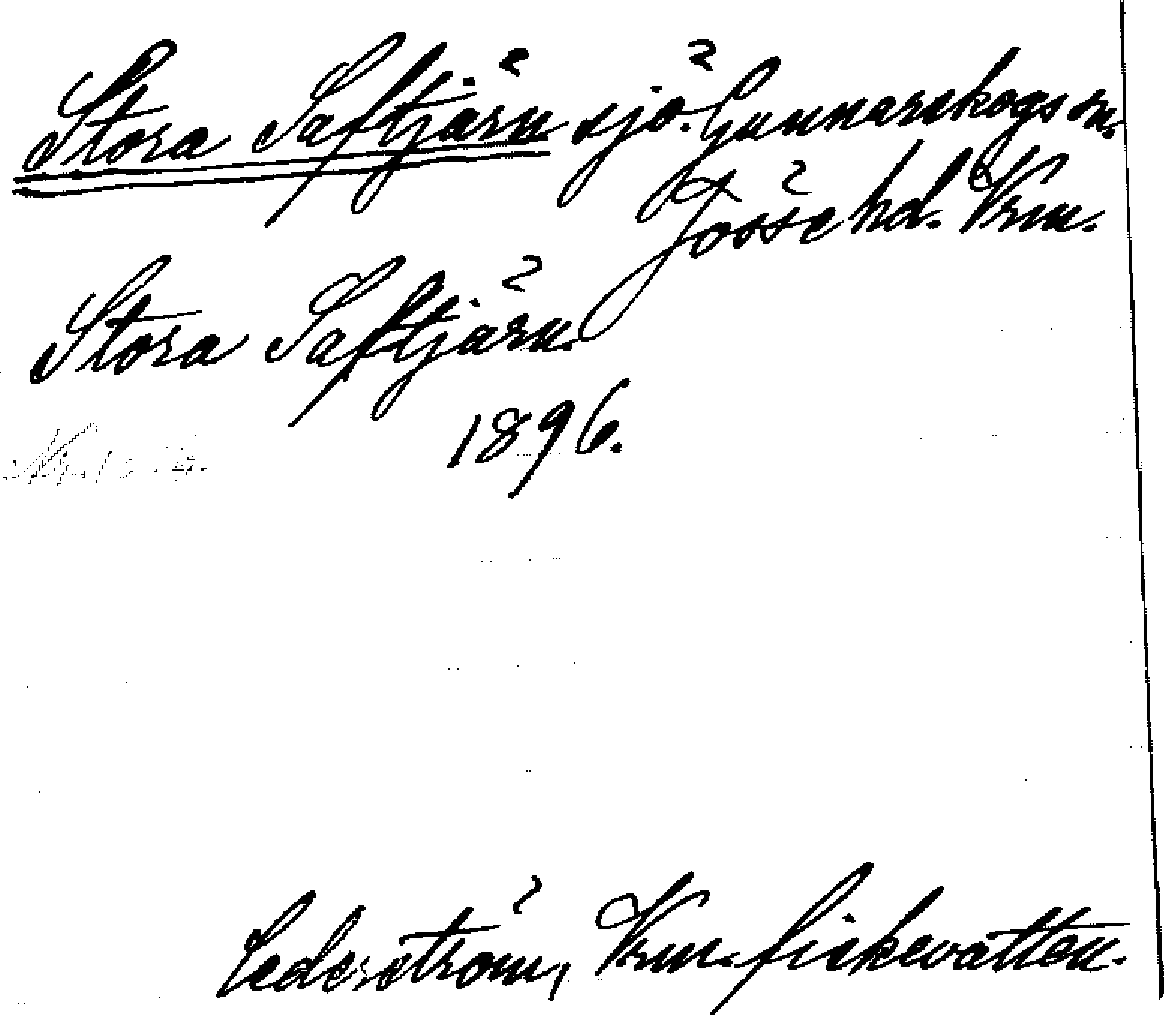 Stora Saftjärn sjö. Gunnarskogs sn.
Jösse hd. Vrm.
Stora Saftjärn.
1896.
Cederström, Vrm. fiskevatten.